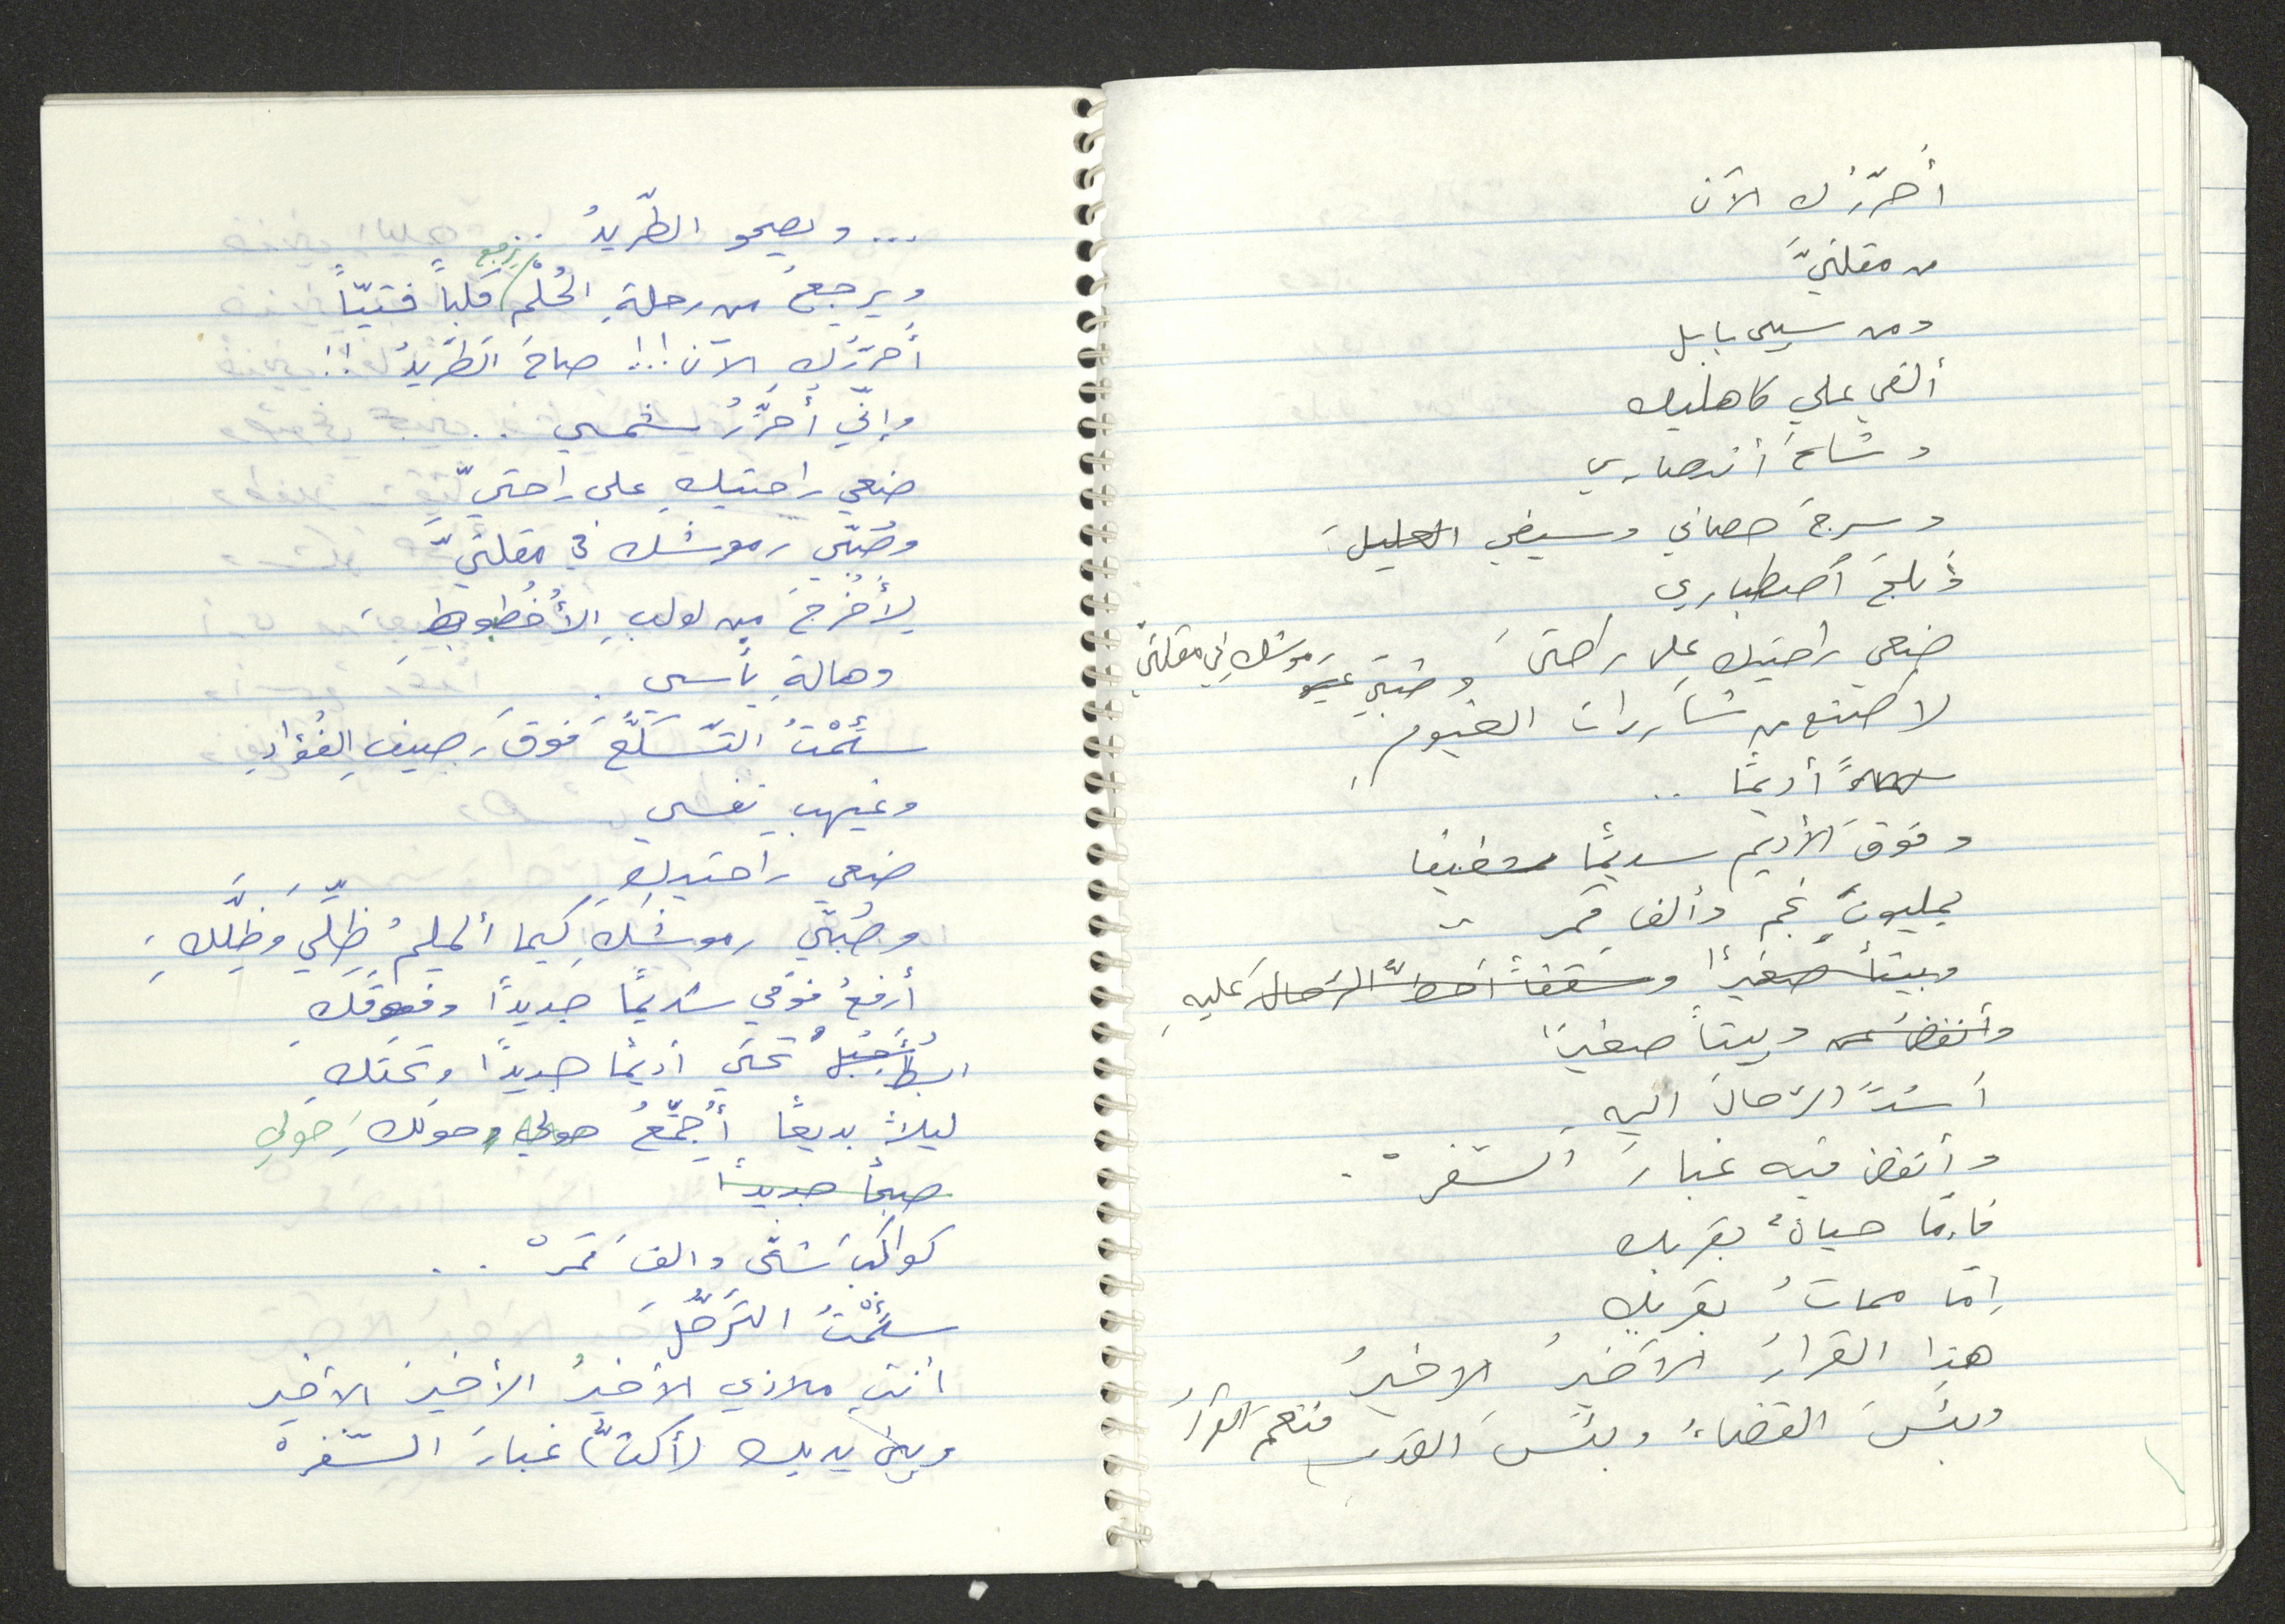 أحرّرك الآن
من مقلتيَّ
ومن سبي بابل
ألقي على كاهليك
وشاحَ أنتصاري
وسرجَ حصاني وسيفي العليل
ضعي راحتيك على راحتيَ وصُبّي رموشك في مقلتيّ
لأصنع من شارات الغيوم
سماءً أديمًا ..
وفوقَ الأديم سديمًا
بمليون نجم وألف قمر
وبيتاً صغيرًا وسقفاً أحطّ الرّحال عليهِ
وأنفض وبيتاً صغيرًا
أشدّ الرّحالَ اليه
وأنفض فيه غبارَ السّفرْ .
فإمّا حياةٌ بقربك
إمّا مماتٌ بقربك
هذا القرارُ الأخيرُ الاخيرُ
وبئسَ القضاءُ وبئسَ القدر فنعمَ القرارُ
... ويصحو الطّريدُ ..
ويرجعُ من رحلةِ الحُلْمْ يرجع كلباً فتيّاً
أحرّرُكِ الآن !.! صاحَ الطّريدُ !.
وإنّي أحرّرُ شمسي ..
ضعي راحتيكِ على راحتيّ
وصُبّي رموشك في مقلتيّ
لِأَخرُجَ من لولبِ الأُخْطبوطِ
وهالةِ يأسي .
سئمْتُ التّسكّعَ فوقَ رصيفِ الفُؤادِ
وغيهبِ نفسي
ضعي راحتيكِ
وصُبّي رموشكِ كيما ألملِمُ ظِلّي وَظِلَّكِ
أرفعُ فوقي سديمًا جديدًا وفوقكِ
أبسطُ أَجبُلُ تحتي أديمًا جديدًا وتحتكِ
ليلاً بديعًا أُجمّعُ حولي وحولكِ حولي
صبحاً جديداً
كواكبَ شتّى والفَ قمرْ ..
سئمْتُ الترحّلَ
أنتِ ملاذي الأخيرُ الأخيرُ الأخير
وبين يديك لأكنّ غبارَ السّفرْ